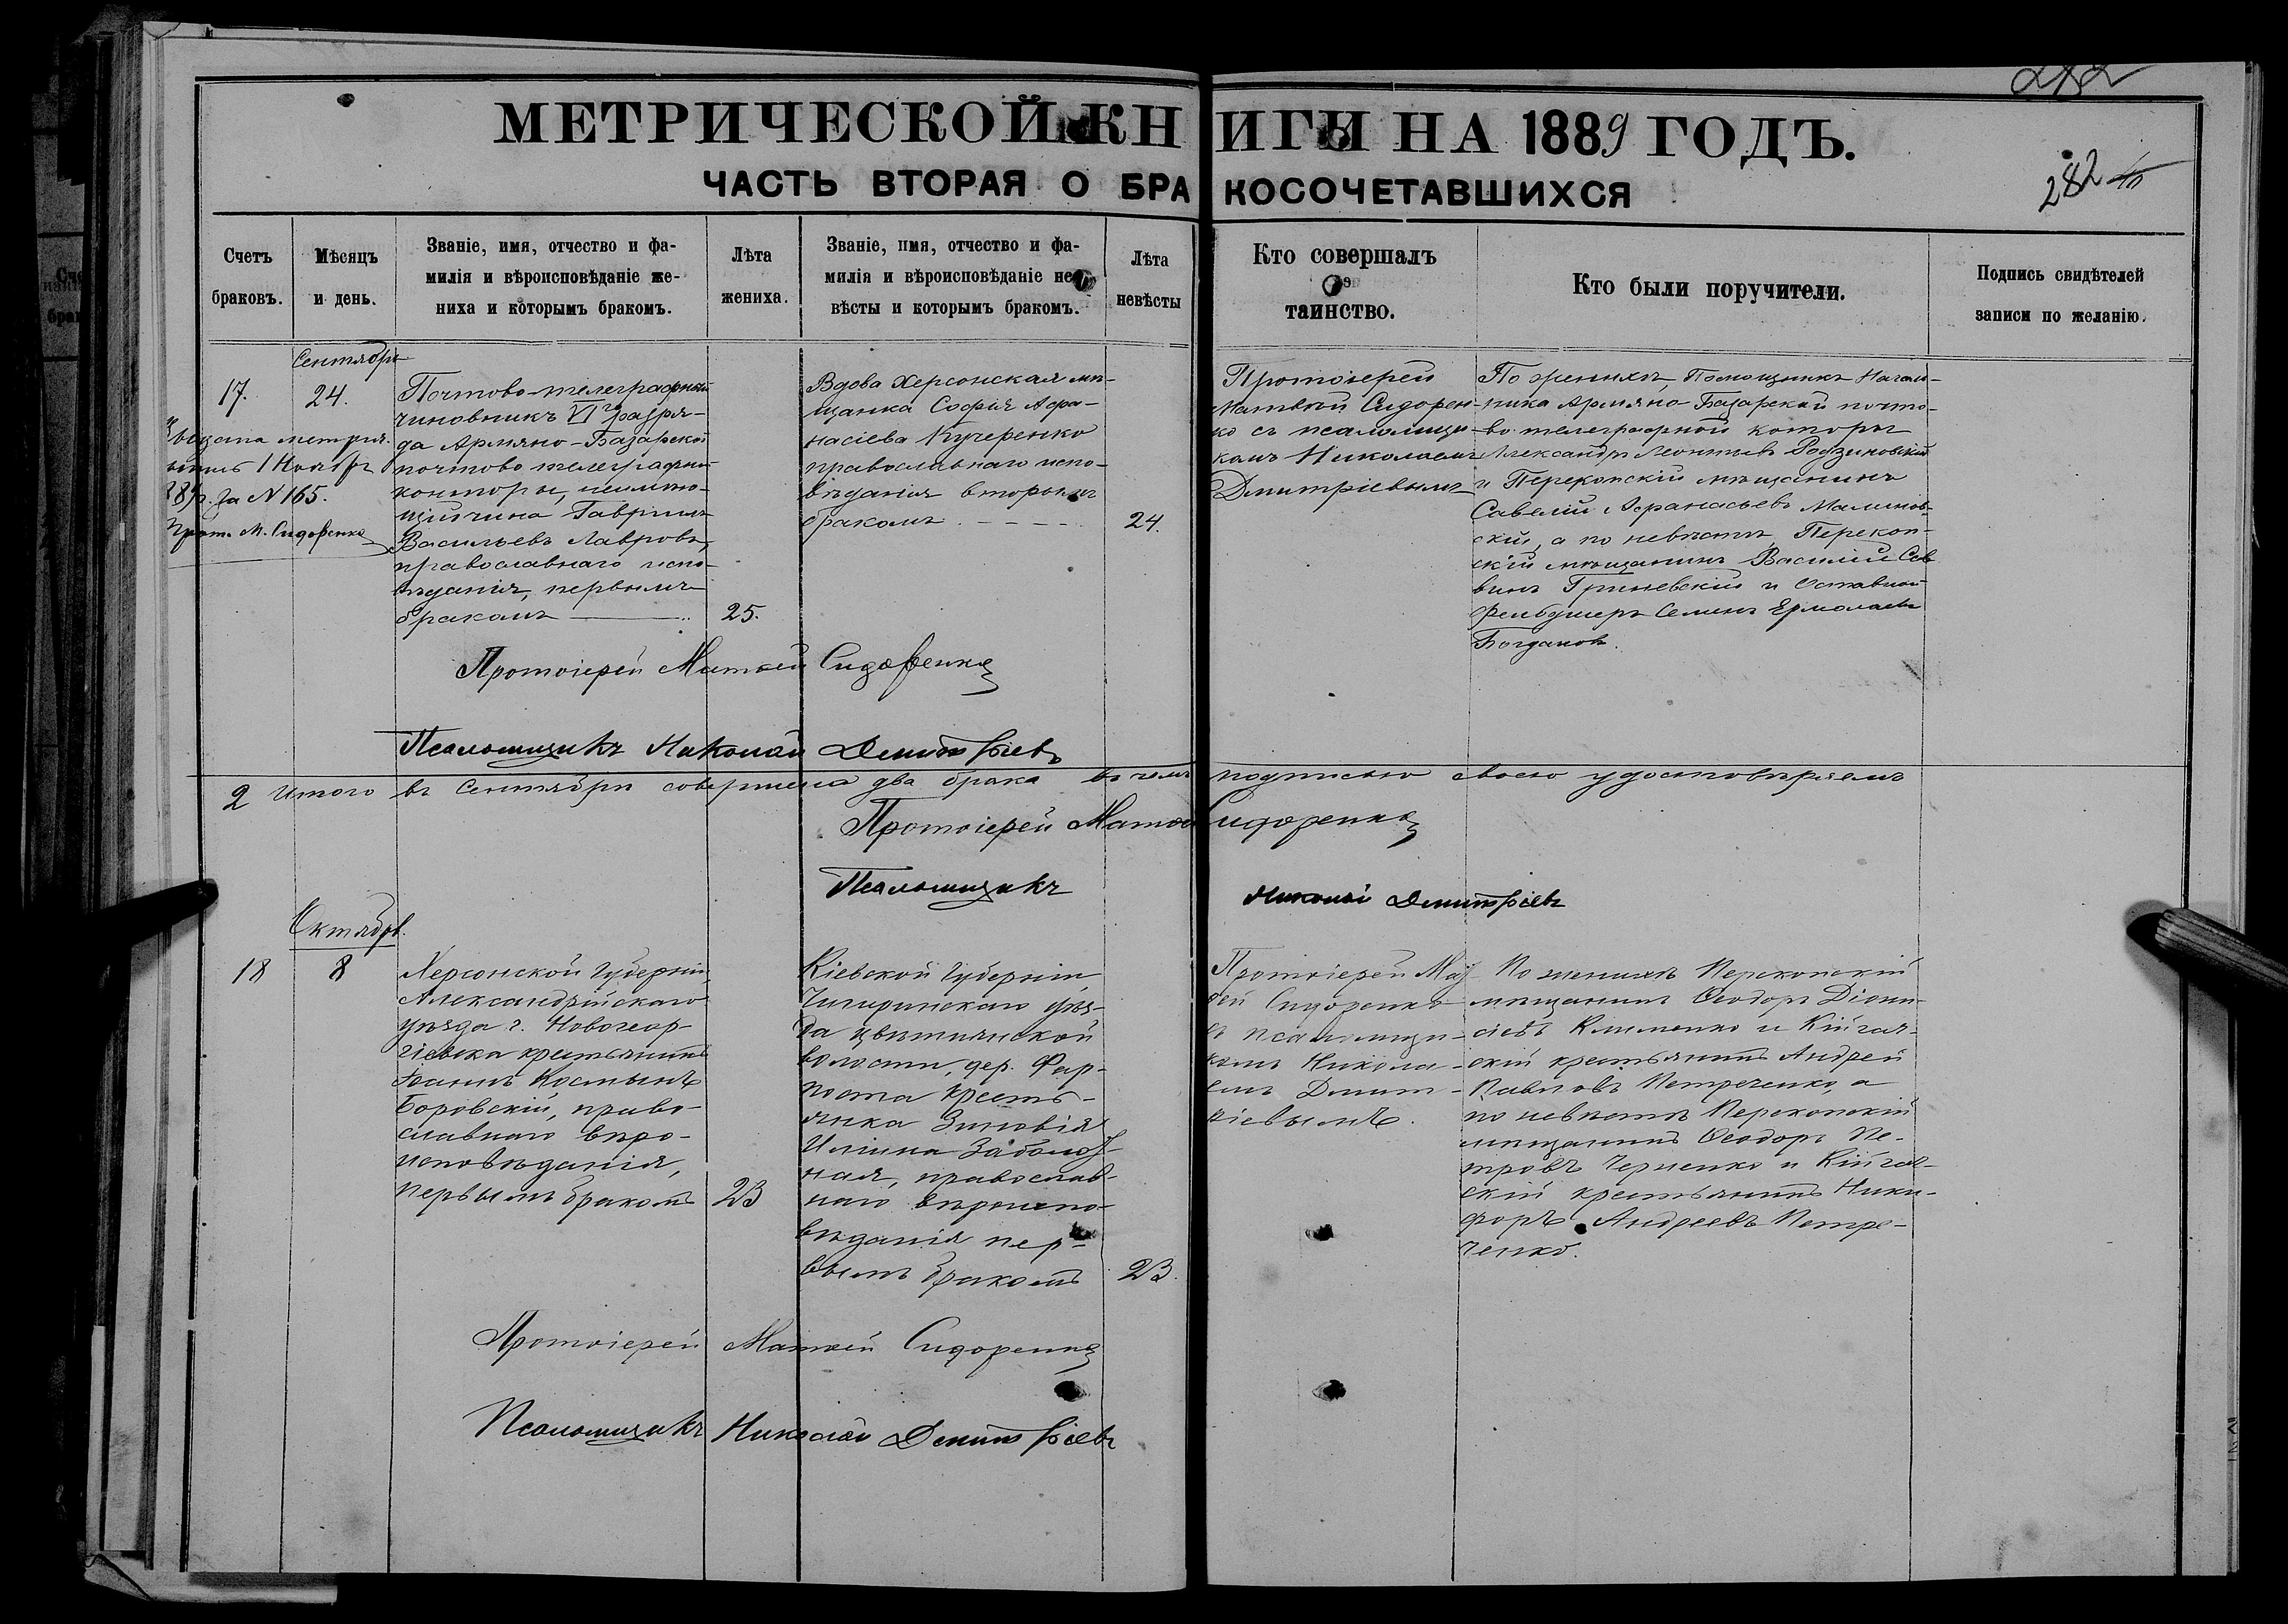 282
МЕТРИЧЕСКОЙ КНИГИ НА 1889 ГОДЪ.
ЧАСТЬ ВТОРАЯ О БРАКОСОЧЕТАВШИХСЯ
282
Счетъ
браковъ.
Мѣсяцъ
и день.
Званіе, имя, отчество и фа-
милія и вѣроисповѣданіе же-
ниха и которымъ бракомъ.
Лѣта
жениха.
Званіе, имя, отчество и фа-
милія и вѣроисповѣданіе не-
вѣсты и которымъ бракомъ.
Лѣта
невѣсты
Кто совершалъ
таинство.
Кто были поручители.
Подпись свидѣтелей
записи по желанію.
Сентябрь
17.
24.
1 Ноября
за N 165.
Прот. М. Сидоренко
Почтово-телеграфный
чиновникъ VI разря-
да Армяно-Базарской
почтово телеграфной
конторы,
Гавріилъ
Васильевъ Лавровъ,
православнаго испо-
вѣданія, первымъ
бракомъ
25.
Вдова Херсонская мѣ-
щанка Софія Афа-
насіева Кучеренко
православнаго испо-
вѣданія вторымъ
бракомъ
24.
Протоіерей
Матвѣй Сидорен-
ко съ псаломщи-
комъ Николаемъ
Дмитріевымъ
По женихѣ, Помощникъ Началь-
ника Армяно-Базарской почто-
во-телеграфной конторы
Александръ Леонтьевъ
и Перекопскій мѣщанинъ
Савелій Афанасьевъ Малинов-
скій, а по невѣстѣ, Перекоп-
скій мѣщанинъ Василій Сав
винъ Гриневскій и Отставной
Фельдшеръ Семенъ Ермолаевъ
Богдановъ.
Протоіерей Матѳей Сидоренко
Псаломщикъ Николай Дмитріевъ
2 Итого въ Сентябрѣ совершено два брака въ чемъ подписью своею удостовѣряемъ
Протоіерей Матѳей Сидоренко
Псаломщикъ Николай Дмитріевъ
Октябрь.
18
8
Херсонской Губерніи,
Александрійскаго
уѣзда г. Новогеор-
гіевска крестьянинъ
Іоаннъ Костынъ
Боровскій, право-
славнаго вѣро-
исповѣданія,
первымъ бракомъ
23
Кіевской Губерніи
Чигиринскаго уѣз-
да Цвѣтнянской
волости, дер. Фар-
поста кресть-
янка Зиновія
Ильина Заболот-
ная, православ-
наго вѣроиспо-
вѣданія пер-
вымъ бракомъ
23.
Протоіерей Мат-
ѳей Сидоренко
съ псаломщи-
комъ Никола-
емъ Дмит-
ріевымъ.
По женихѣ Перекопскій
мѣщанинъ Ѳеодоръ Діони-
сіевъ Клименко и
крестьянинъ Андрей
Павловъ Петреченко, а
по невѣстѣ Перекопскій
мѣщанинъ Ѳеодоръ Пе-
тровъ Черненко и
скій крестьянинъ Ники-
форъ Андреевъ Петре-
ченко.
Протоіерей Матѳей Сидоренко
Псаломщикъ Николай Дмитріевъ